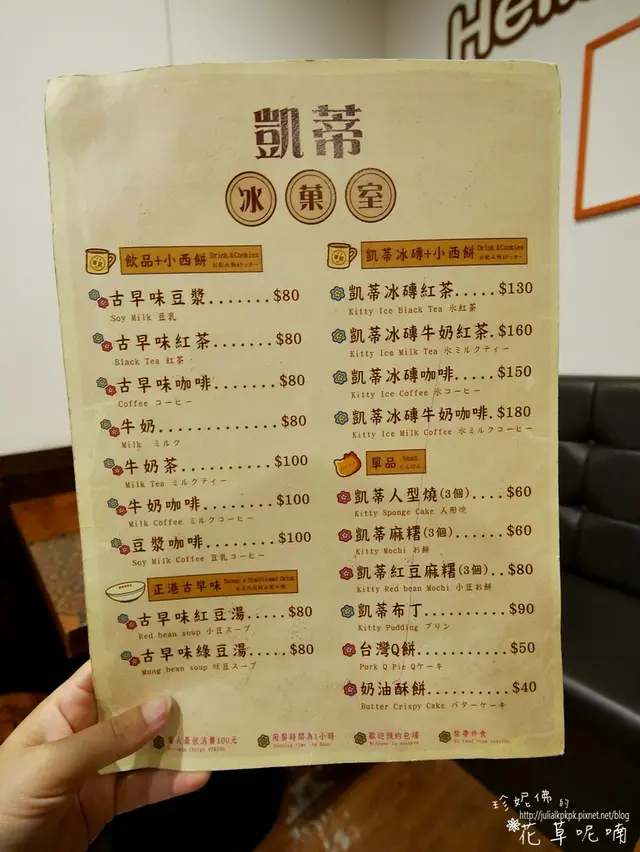 凱蒂
冰菓室
飲品+小西餅 Drink&Cookies
古早味豆漿.......$80
Soy Milk 豆乳
古早味紅茶.......$80
Black Tea 紅茶
古早味咖啡.......$80
Coffee コーヒー
牛奶............$80
Milk ミルク
牛奶茶..........$100
Milk Tea ミルクティー
牛奶咖啡........$100
Milk Coffee ミルクコーヒー
豆漿咖啡........$100
Soy Milk Coffee 豆乳コーヒー
正港古早味
古早味紅豆湯.....$80
Red bean soup 小豆スープ
古早味綠豆湯.....$80
Mung bean soup 緑豆スープ
凱蒂冰磚+小西餅 Drink&Cookies
凱蒂冰磚紅茶.....$130
Kitty Ice Black Tea 氷紅茶
凱蒂冰磚牛奶紅茶.$160
Kitty Ice Milk Tea 氷ミルクティー
凱蒂冰磚咖啡.....$150
Kitty Ice Coffee 氷コーヒー
凱蒂冰磚牛奶咖啡.$180
Kitty Ice Milk Coffee 氷ミルクコーヒー
單品 Snack
凱蒂人型燒(3個)....$60
Kitty Sponge Cake 人形焼
凱蒂麻糬(3個)......$60
Kitty Mochi お餅
凱蒂紅豆麻糬(3個)..$80
Kitty Red bean Mochi 小豆お餅
凱蒂布丁........$90
Kitty Pudding プリン
台灣Q餅.........$50
Pork Q Pie Qケーキ
奶油酥餅........$40
Butter Crispy Cake バターケーキ
每人最低消費100元
用餐時間為1小時
歡迎預約包場
禁帶外食
珍妮佛的
http://julialkpkpk.pixnet.net/blog
花草呢喃